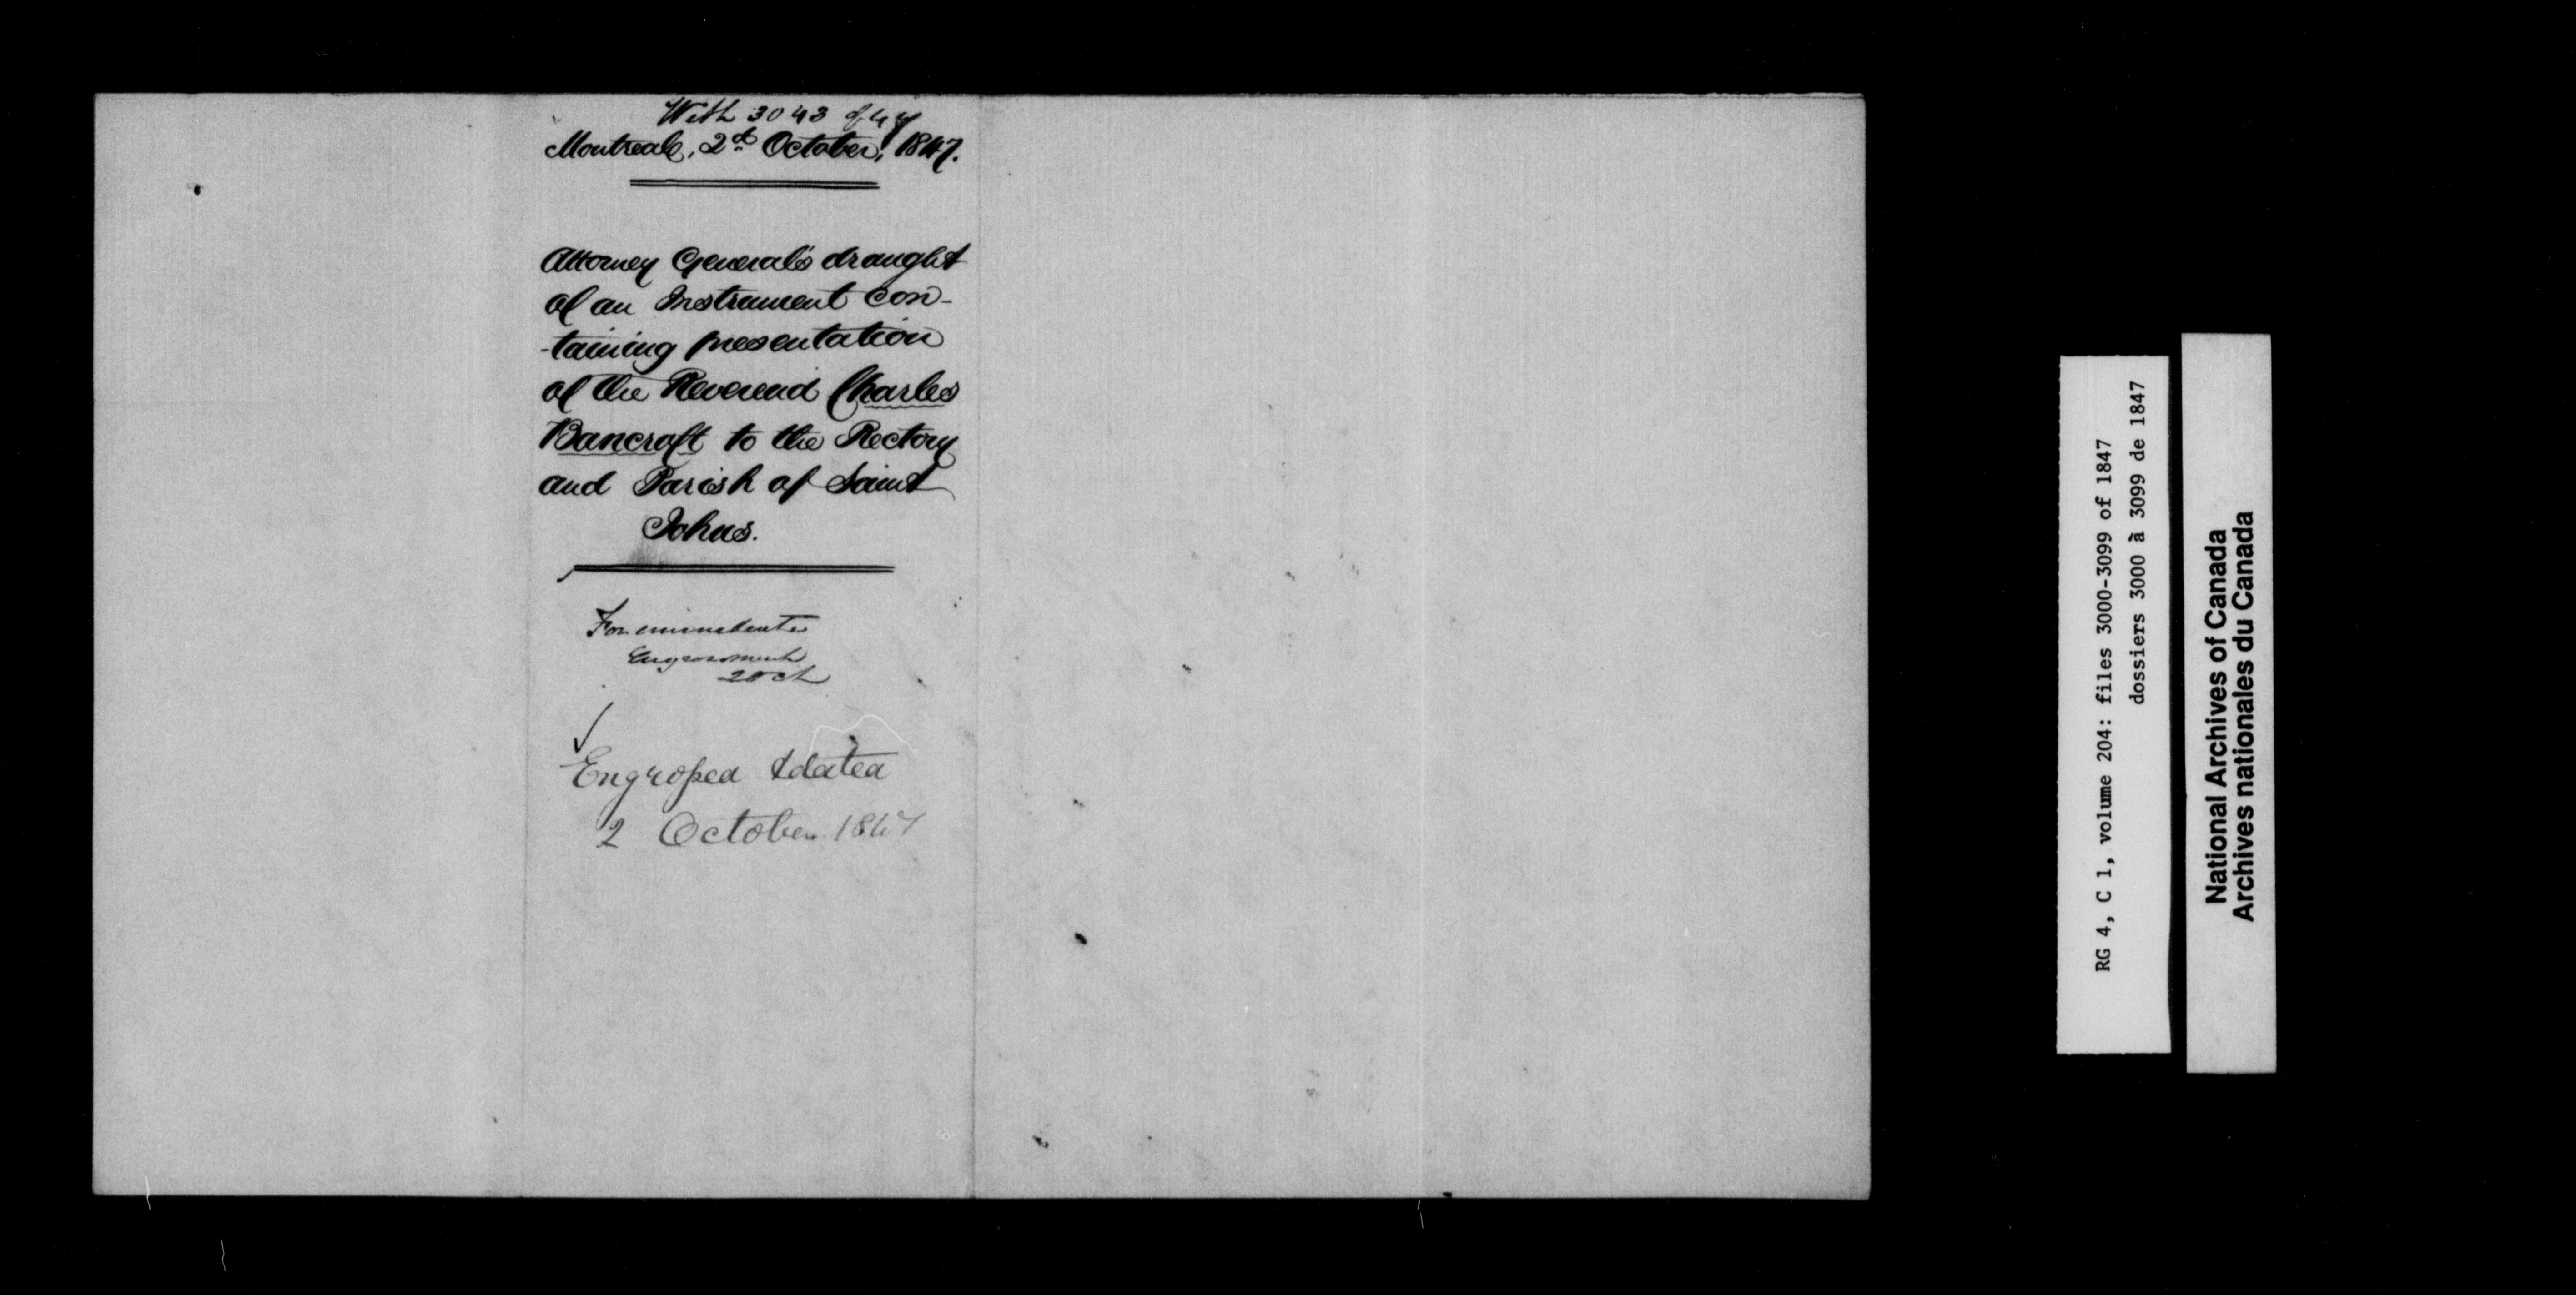 With 3043 of 47
Montreal, 2d October, 1847.
Attorney General's draught
of an Instrument con-
-taining presentation
of the Reverend Charles
Bancroft to the Rectory
and Parish of Saint
Johns.
For immediate
Engrossment
2 Oct
Engrossed & dated
2 October 1847
RG 4, C 1, volume 204: files 3000-3099 of 1847
dossiers 3000 à 3099 de 1847
National Archives of Canada
Archives nationales du Canada